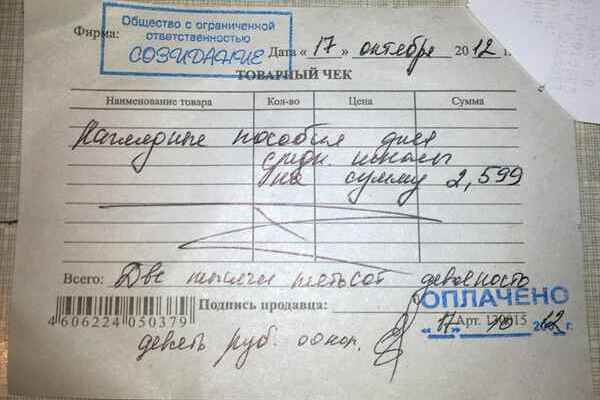 Общество с ограниченной
ответственностью
СОЗИДАНИЕ
Фирма: Дата «17» октября 2012 г.
ТОВАРНЫЙ ЧЕК
Наименование товара Кол-во Цена Сумма
Наглядные пособия для
средн школы
на сумму 2,599
Всего: Две тысячи пятьсот девяносто
Подпись продавца:
ОПЛАЧЕНО
4606224050379
«17» 10 2012 г.
Арт. 130015
девять руб. 00 коп.